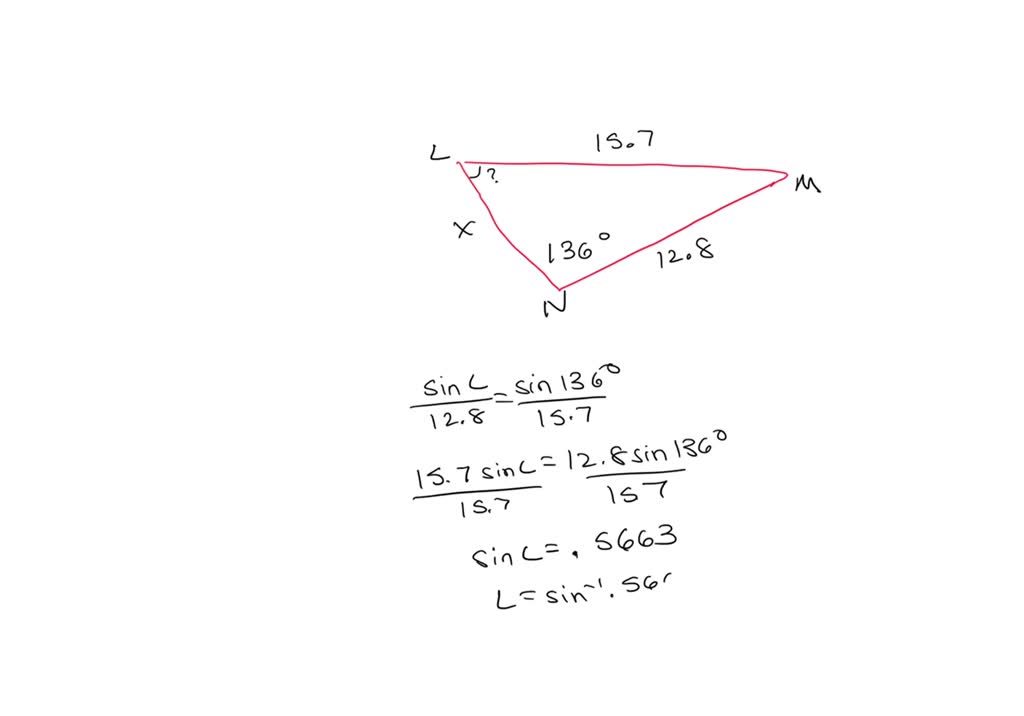 15.7
L
?
M
x
136°
12.8
N
sin L / 12.8 = sin 136° / 15.7
15.7 sin L / 15.7 = 12.8 sin 136° / 157
sin L = . 5663
L = sin⁻¹ . 56